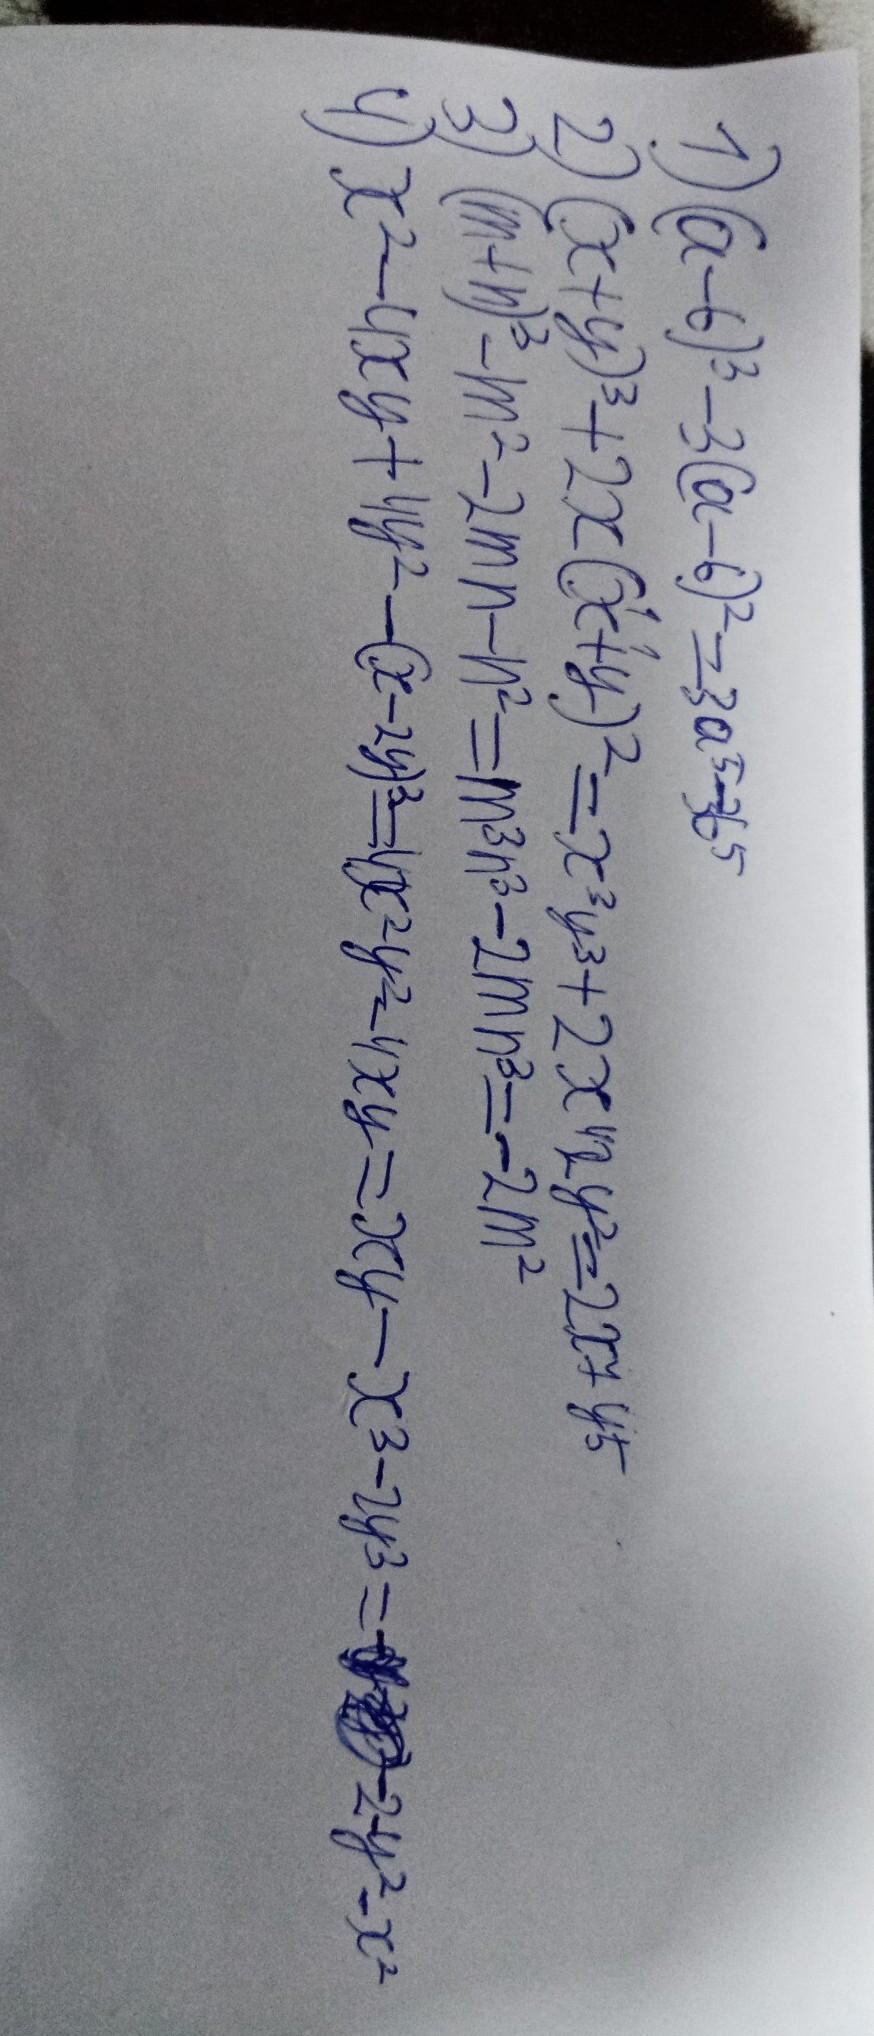 1) (a-b)³-3(a-b)²=3a⁵-3b⁵
2) (x+y)³+2x(x+y)²=x³y³+2x⁴2y²=2x⁷+y⁵
3) (m+n)³-m²-2mn-n²=m³n³-2mn³=-2m²
4) x²-4xy+4y²-(x-2y)³=4x²y²-4xy=xy-x³-2y³=-2y²-x²